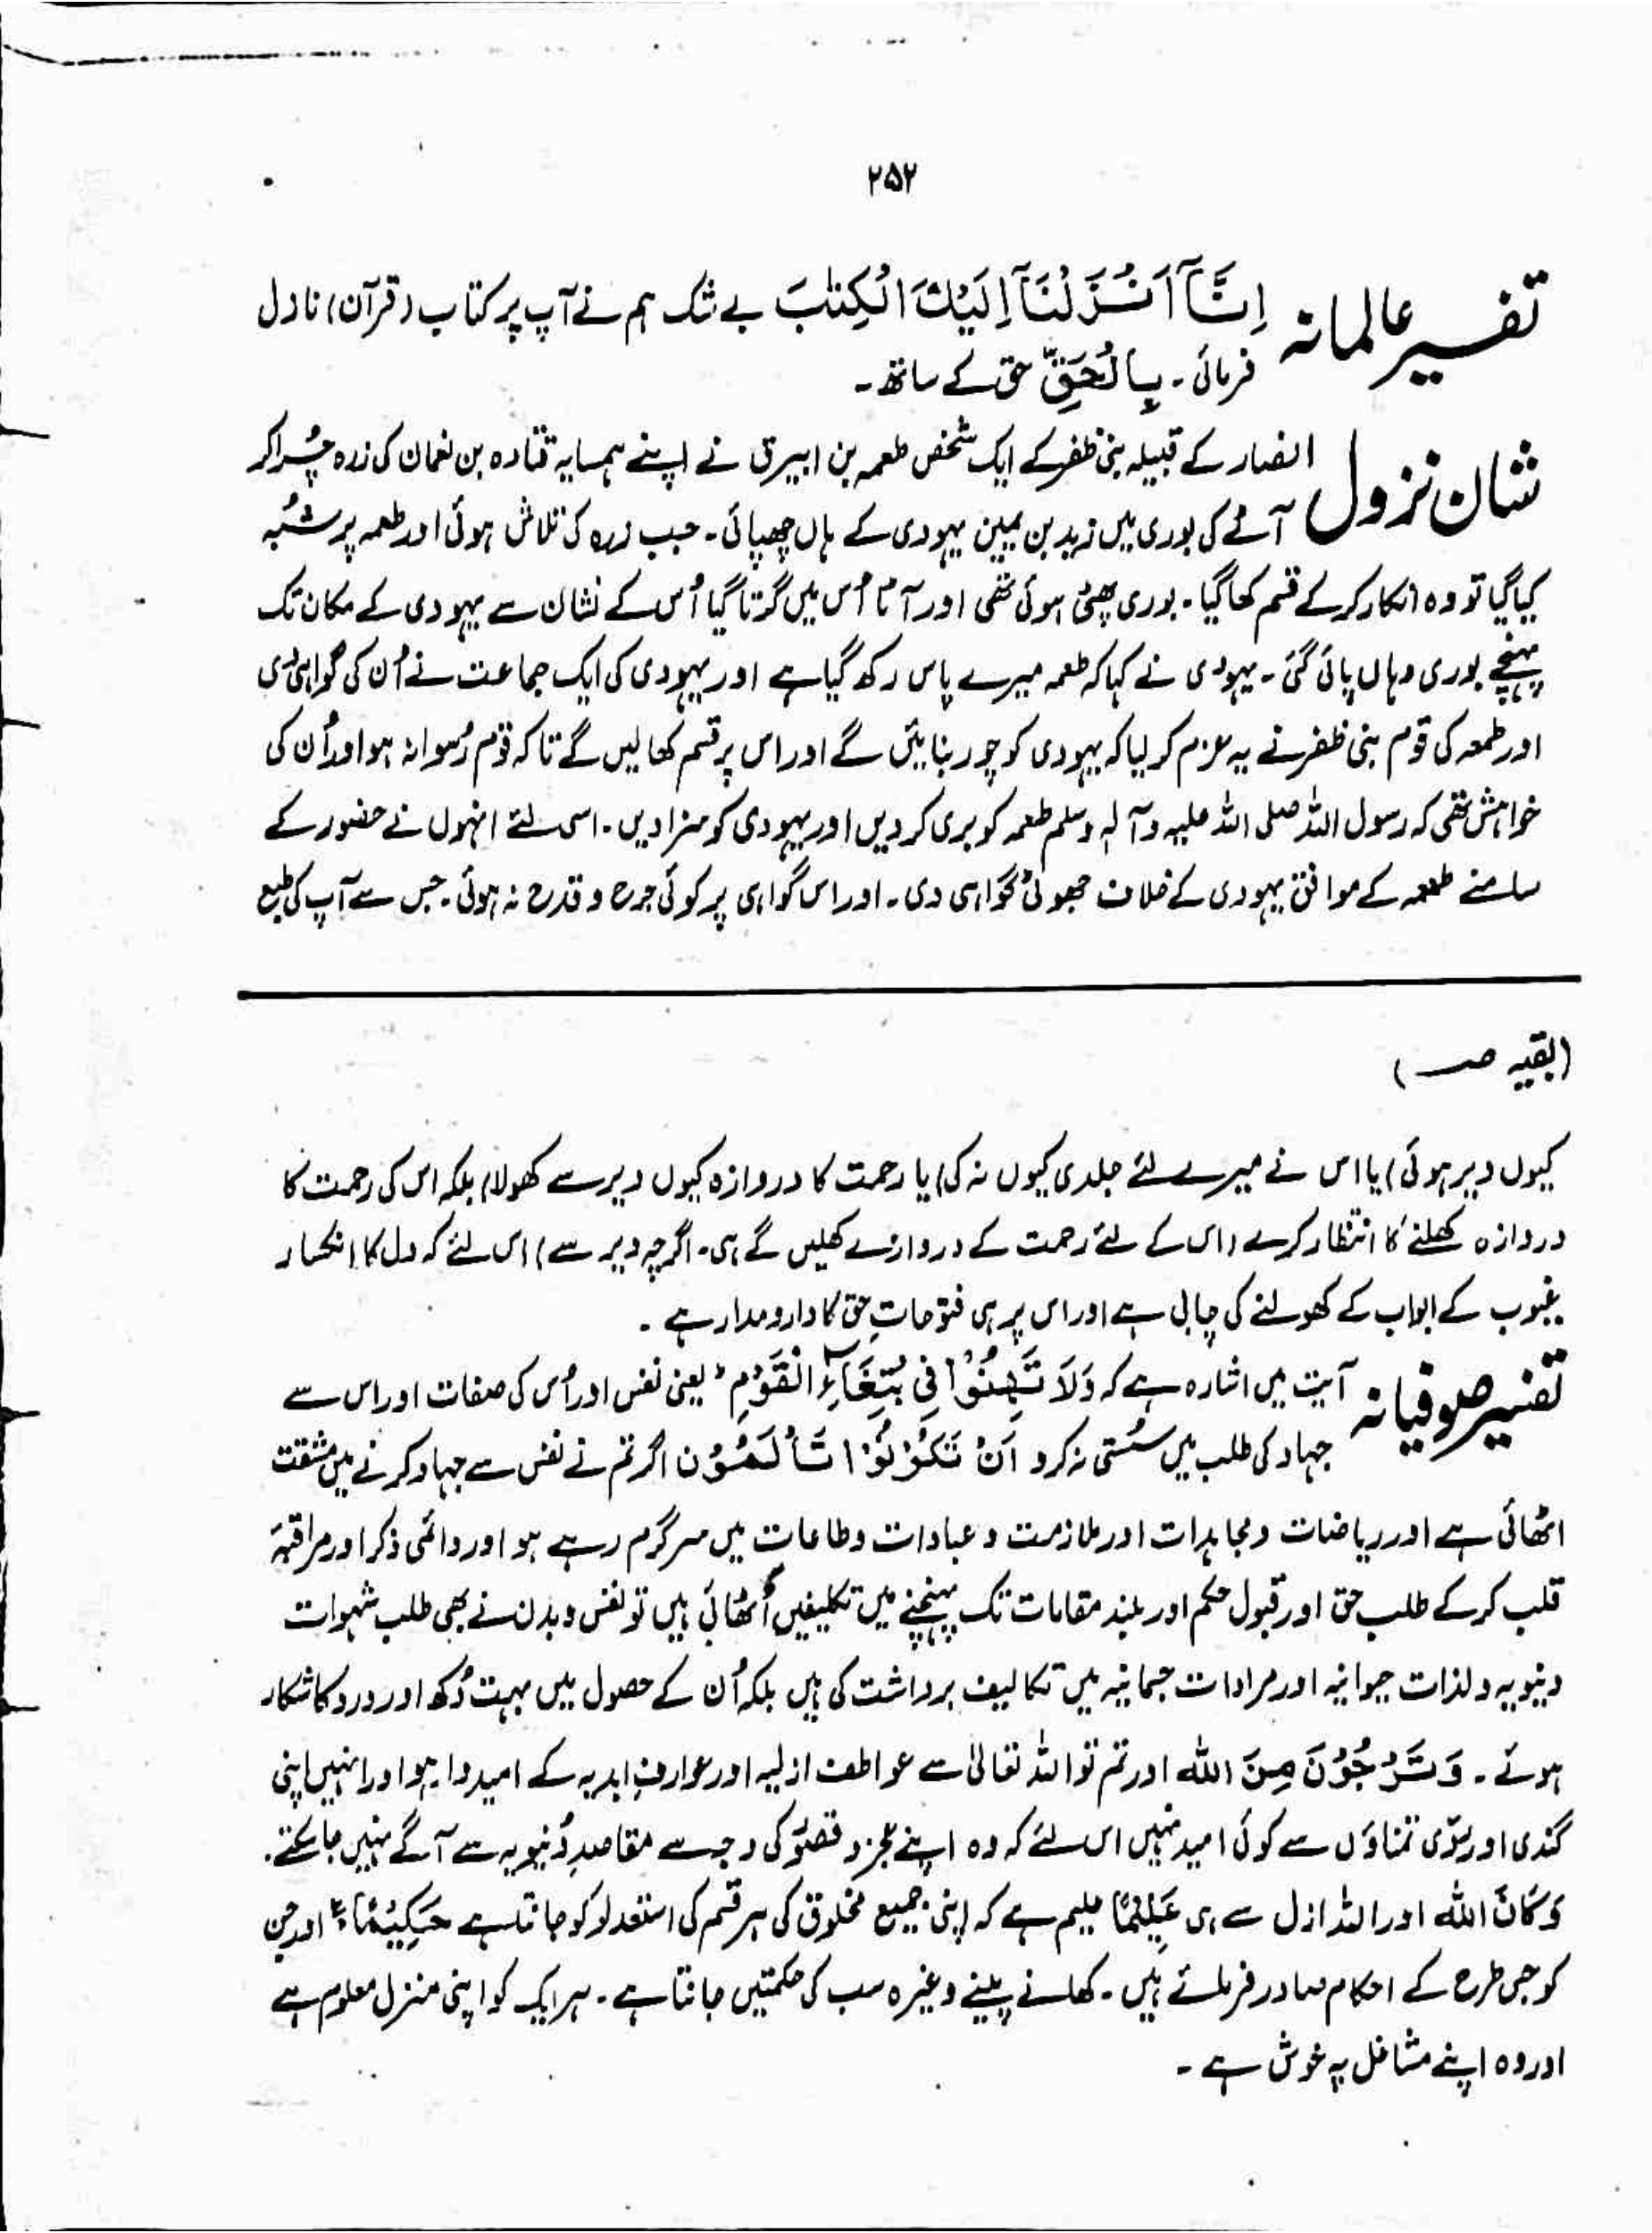 ۲۵۲
تفسیر عالمانہ اِنَّآ اَنْزَلْنَآ اِلَیْكَ الْكِتٰبَ بے شک ہم نے آپ پر کتاب (قرآن) نازل
فرمائی۔ بِالْحَقِّ حق کے ساتھ۔
شان نزول انصار کے قبیلہ بنی ظفر کے ایک شخص طعمہ بن ابیرق نے اپنے ہمسایہ قتادہ بن نعمان کی زرہ چُرا کر
آٹے کی بوری میں زید بن یمین یہودی کے ہاں چھپائی۔ جب زرہ کی تلاش ہوئی اور طعمہ پر شُبہ
کیا گیا تو وہ انکار کر کے قسم کھا گیا۔ بوری پھٹی ہوئی تھی اور آٹا اُس میں گرتا گیا اُس کے نشان سے یہودی کے مکان تک
پہنچے بوری وہاں پائی گئی۔ یہودی نے کہا کہ طعمہ میرے پاس رکھ گیا ہے اور یہودی کی ایک جماعت نے اُن کی گواہی دی
اور طمعہ کی قوم بنی ظفر نے یہ عزم کر لیا کہ یہودی کو چور بنائیں گے اور اس پر قسم کھالیں گے تاکہ قوم رُسوا نہ ہو اور اُن کی
خواہش تھی کہ رسول اللہ صلی اللہ علیہ وآلہٖ وسلم طعمہ کو بری کر دیں اور یہودی کو سزا دیں۔ اسی لئے انہوں نے حضور کے
سامنے طعمہ کے موافق یہودی کے خلاف جھوٹی گواہی دی۔ اور اس گواہی پر کوئی جرح و قدح نہ ہوئی۔ جس سے آپ کی طبع
(بقیہ صـ )
کیوں دیر ہوئی) یا اس نے میرے لئے جلدی کیوں نہ کی) یا رحمت کا دروازہ کیوں دیر سے کھولا) بلکہ اس کی رحمت کا
دروازہ کھلنے کا انتظار کرے (اس کے لئے رحمت کے دروازے کھلیں گے ہی۔ اگرچہ دیر سے) اس لئے کہ دل کا انکسار
غیوب کے ابواب کے کھولنے کی چابی ہے اور اس پر ہی فتوحاتِ حق کا دارومدار ہے ۔
تفسیر صوفیانہ آیت میں اشارہ ہے کہ وَلَا تَهِنُوْا فِی بْتِغَآءِ الْقَوْمِ ؕ یعنی نفس اور اُس کی صفات اور اس سے
جہاد کی طلب میں سُستی نہ کرو اَنْ تَكُوْنُوْا تَاْلَمُوْن اگر تم نے نفس سے جہاد کرنے میں مشقت
اٹھائی ہے اور ریاضات و مجاہدات اور ملازمت و عبادات وطاعات میں سرگرم رہے ہو اور دائمی ذکر اور مراقبۂ
قلب کر کے طلب حق اور قبول حکم اور بلند مقامات تک پہنچنے میں تکلیفیں اُٹھائی ہیں تو نفس و بدن نے بھی طلب شہوات
دینویہ و لذات حیوانیہ اور مرادات جسمانیہ میں تکالیف برداشت کی ہیں بلکہ اُن کے حصول میں بہت دُکھ اور درد کا شکار
ہوئے ۔ وَتَرْجُوْنَ مِنَ اللّٰه اور تم تو اللہ تعالیٰ سے عواطف ازلیہ اور عوارفِ ابدیہ کے امیدوار ہو اور انہیں اپنی
گندی اور ردّی تمناؤں سے کوئی امید نہیں اس لئے کہ وہ اپنے عجز و قصور کی وجہ سے مقاصدِ دُنیویہ سے آگے نہیں جا سکتے۔
وَكَانَ اللّٰه اور اللہ ازل سے ہی عَلِیْمًا علیم ہے کہ اپنی جمیع مخلوق کی ہر قسم کی استعداد کو جانتا ہے حَكِیْمًا اور جن
کو جس طرح کے احکام صادر فرمائے ہیں ۔ کھانے پینے وغیرہ سب کی حکمتیں جانتا ہے ۔ ہر ایک کو اپنی منزل معلوم ہے
اور وہ اپنے مشاغل پہ خوش ہے ۔